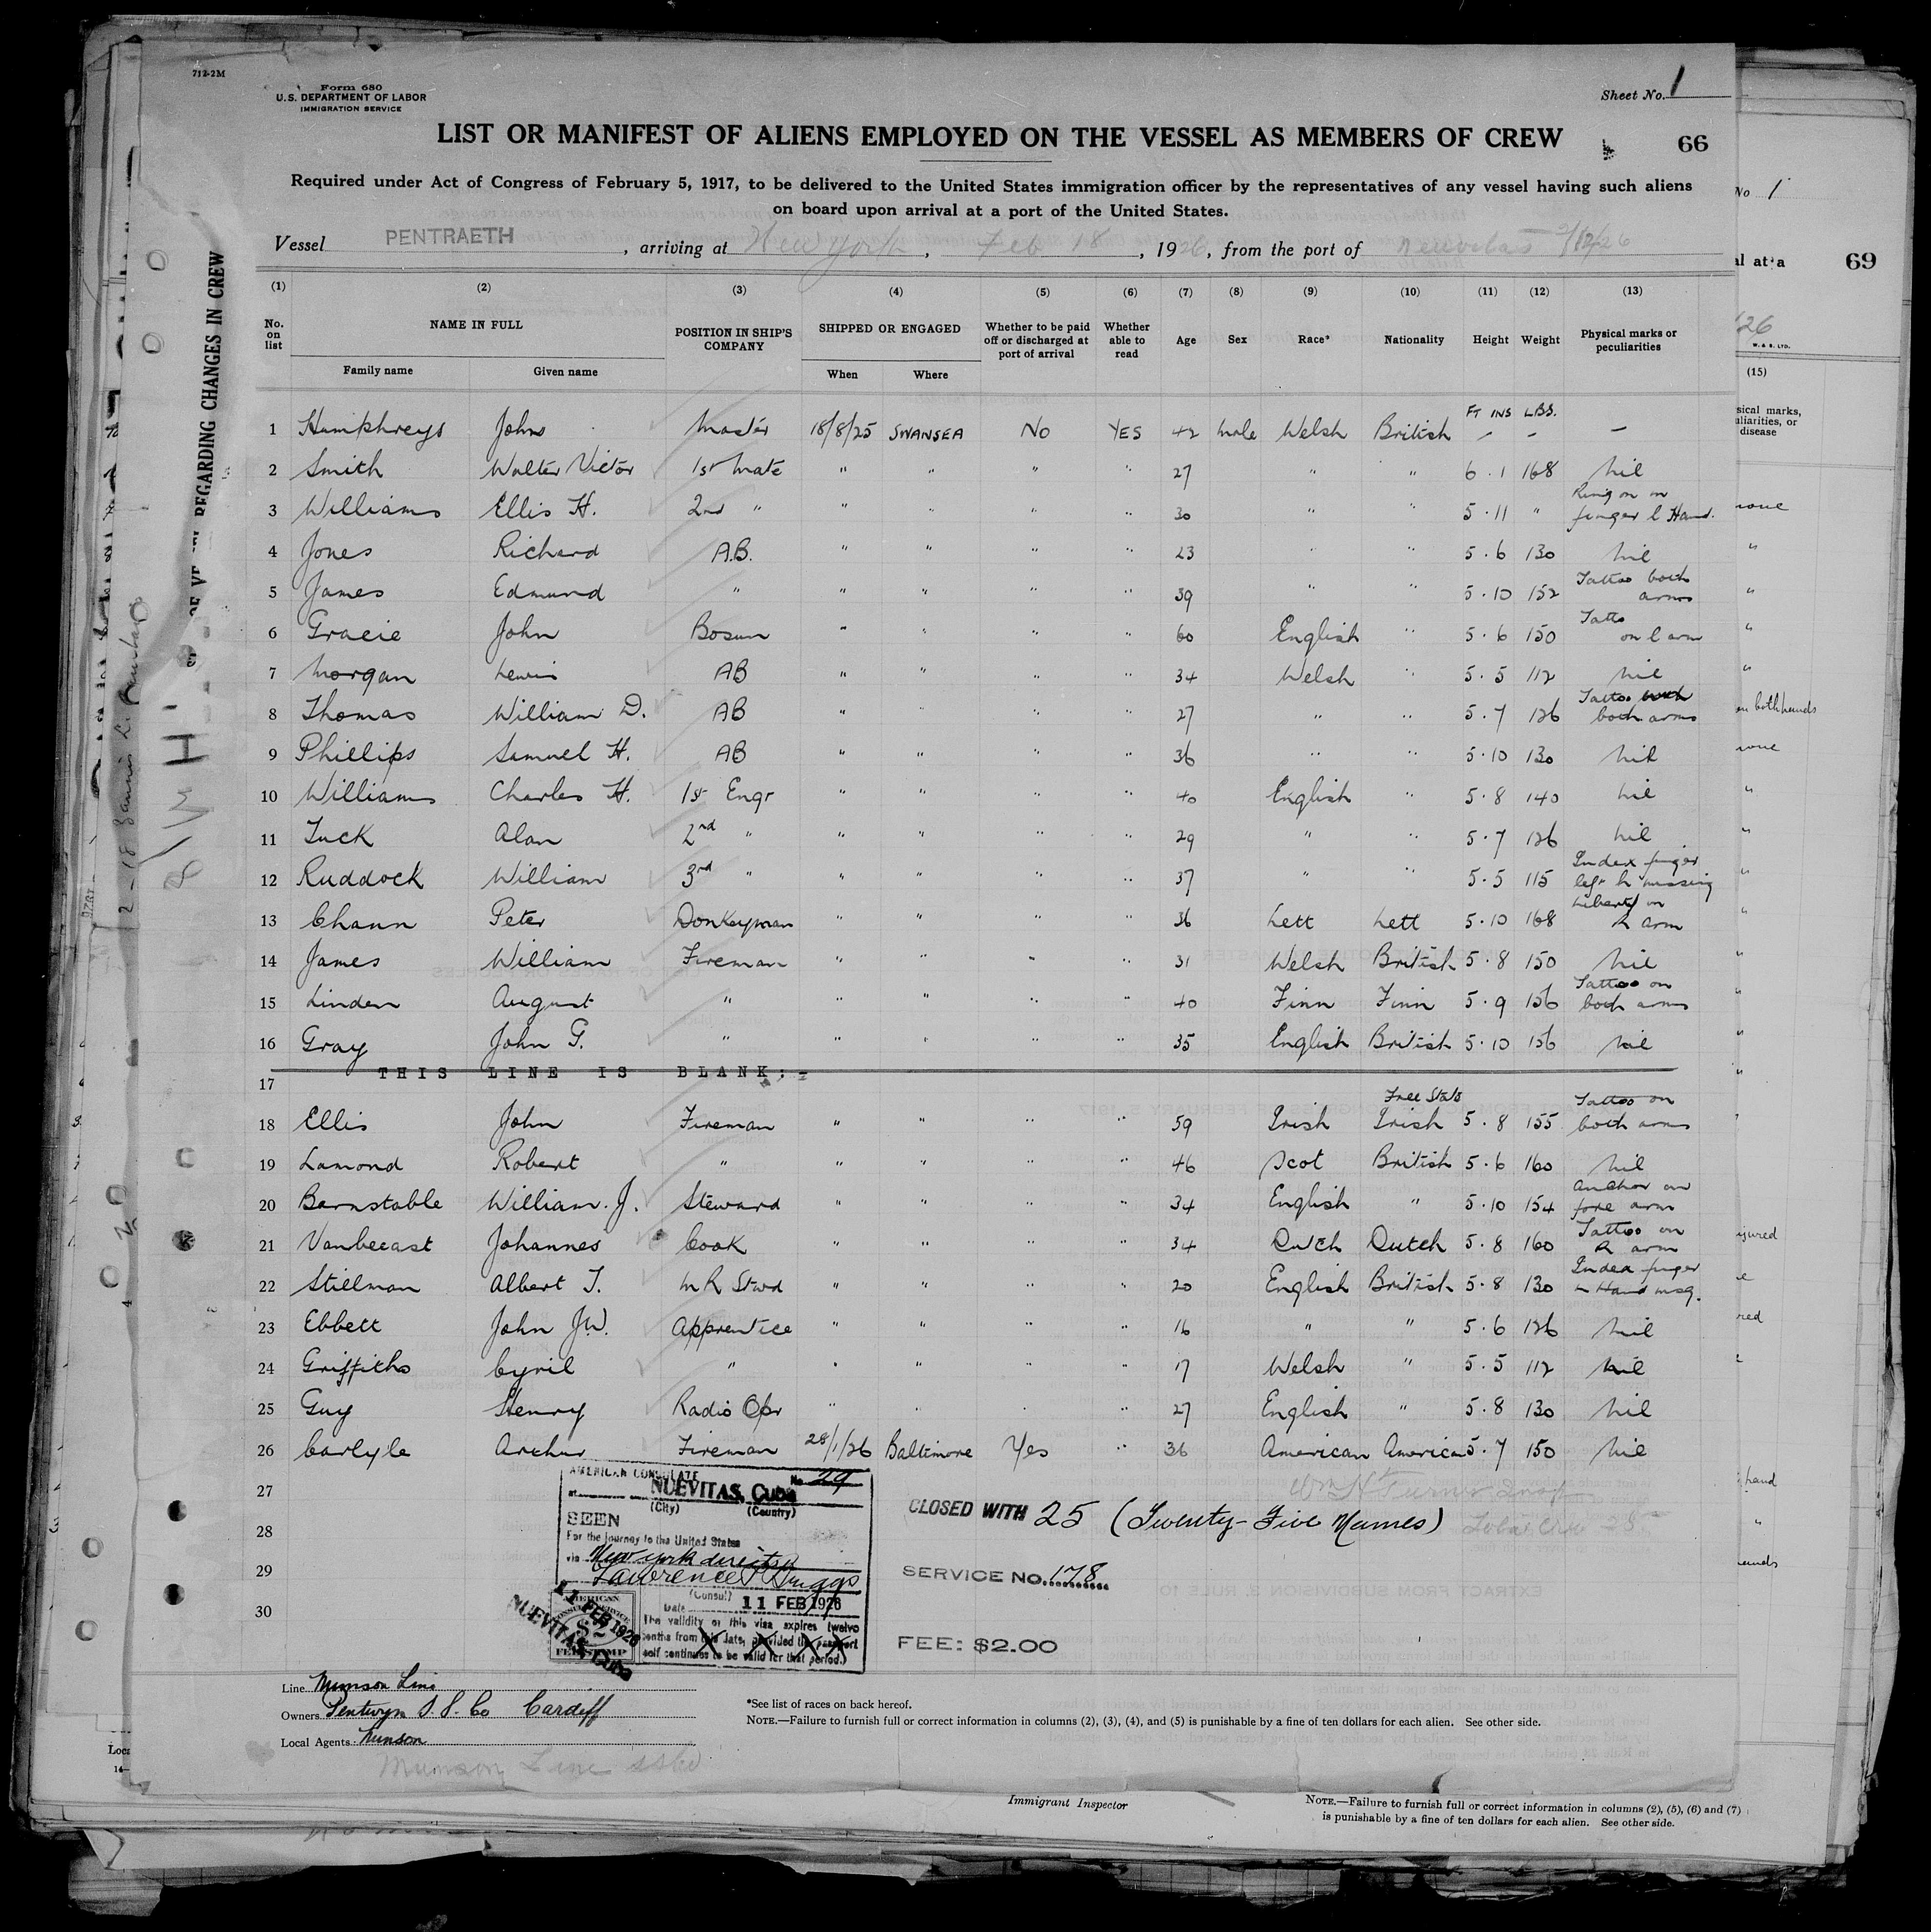 712-2M
Form 680
U.S. DEPARTMENT OF LABOR
IMMIGRATION SERVICE
Sheet No. 1
LIST OR MANIFEST OF ALIENS EMPLOYED ON THE VESSEL AS MEMBERS OF CREW
66
Required under Act of Congress of February 5, 1917, to be delivered to the United States immigration officer by the representatives of any vessel having such aliens
on board upon arrival at a port of the United States.
Vessel PENTRAETH, arriving at New York, Feb 18, 1926, from the port of Nuevitas 2/12/26
(1) (2) (3) (4) (5) (6) (7) (8) (9) (10) (11) (12) (13)
No. on list NAME IN FULL POSITION IN SHIP'S COMPANY SHIPPED OR ENGAGED Whether to be paid off or discharged at port of arrival Whether able to read Age Sex Race* Nationality Height Weight Physical marks or peculiarities
Family name Given name When Where
FT INS LBS.
1 Humphreys John Master 18/8/25 SWANSEA No YES 42 Male Welsh British – – –
2 Smith Walter Victor 1st Mate " " " " 27 " " 6.1 168 Nil
3 Williams Ellis H. 2nd " " " " " 30 " " 5.11 " Ring on m finger l Hand.
4 Jones Richard A.B. " " " " 23 " " 5.6 130 Nil
5 James Edmund " " " " " 39 " " 5.10 152 Tattoo both arms
6 Gracie John Bosun " " " " 60 English " 5.6 150 Tatto on l arm
7 Morgan Lewis AB " " " " 34 Welsh " 5.5 112 Nil
8 Thomas William D. AB " " " " 27 " " 5.7 126 Tattoo both arms
9 Phillips Samuel H. AB " " " " 36 " " 5.10 130 Nil
10 Williams Charles H. 1st Engr " " " " 40 English " 5.8 140 Nil
11 Tuck Alan 2nd " " " " " 29 " " 5.7 126 Nil
12 Ruddock William 3rd " " " " " 37 " " 5.5 115 Index finger left h missing
13 Chann Peter Donkeyman " " " " 36 Lett Lett 5.10 168 Liberty on R arm
14 James William Fireman " " " " 31 Welsh British 5.8 150 Nil
15 Linden August " " " " " 40 Finn Finn 5.9 156 Tattoo on both arms
16 Gray John G. " " " " " 35 English British 5.10 156 Nil
THIS LINE IS BLANK:-
17
18 Ellis John Fireman " " " " 59 Irish Free State Irish 5.8 155 Tattoo on both arms
19 Lamond Robert " " " " " 46 Scot British 5.6 160 Nil
20 Barnstable William.J. Steward " " " " 34 English " 5.10 154 Anchor on fore arm
21 Vanbeeast Johannes Cook " " " " 34 Dutch Dutch 5.8 160 Tattoo on R arm
22 Stillman Albert T. M R Stwd " " " " 20 English British 5.8 130 Index finger L Hand msg.
23 Ebbett John J.W. Apprentice " " " " 16 " " 5.6 126 Nil
24 Griffiths Cyril " " " " " 17 Welsh " 5.5 112 Nil
25 Guy Henry Radio Opr " " " " 27 English " 5.8 130 Nil
26 Carlyle Archer Fireman 28/1/26 Baltimore Yes " 36 American American 5.7 150 Nil
27
28
29
30
AMERICAN CONSULATE No 29
at NUEVITAS, Cuba
(City) (Country)
SEEN
For the journey to the United States
via New York direct
Lawrence P. Briggs
(Consul)
Date 11 FEB 1926
The validity of this visa expires twelve
months from this date, provided the passport
self continues to be valid for that period.
11 FEB 1926
NUEVITAS, Cuba
AMERICAN
$2
FEE STAMP
CLOSED WITH 25 (Twenty-Five Names)
Total Crew 25
SERVICE NO. 178
FEE: $2.00
Line Munson Line
Owners Pentwyn S.S. Co Cardiff
Local Agents Munson
Munson Line
*See list of races on back hereof.
NOTE.—Failure to furnish full or correct information in columns (2), (3), (4), and (5) is punishable by a fine of ten dollars for each alien. See other side.
Immigrant Inspector
NOTE.—Failure to furnish full or correct information in columns (2), (5), (6) and (7)
is punishable by a fine of ten dollars for each alien. See other side.
REGARDING CHANGES IN CREW
No 1
69
(15)
W. & S. LTD.